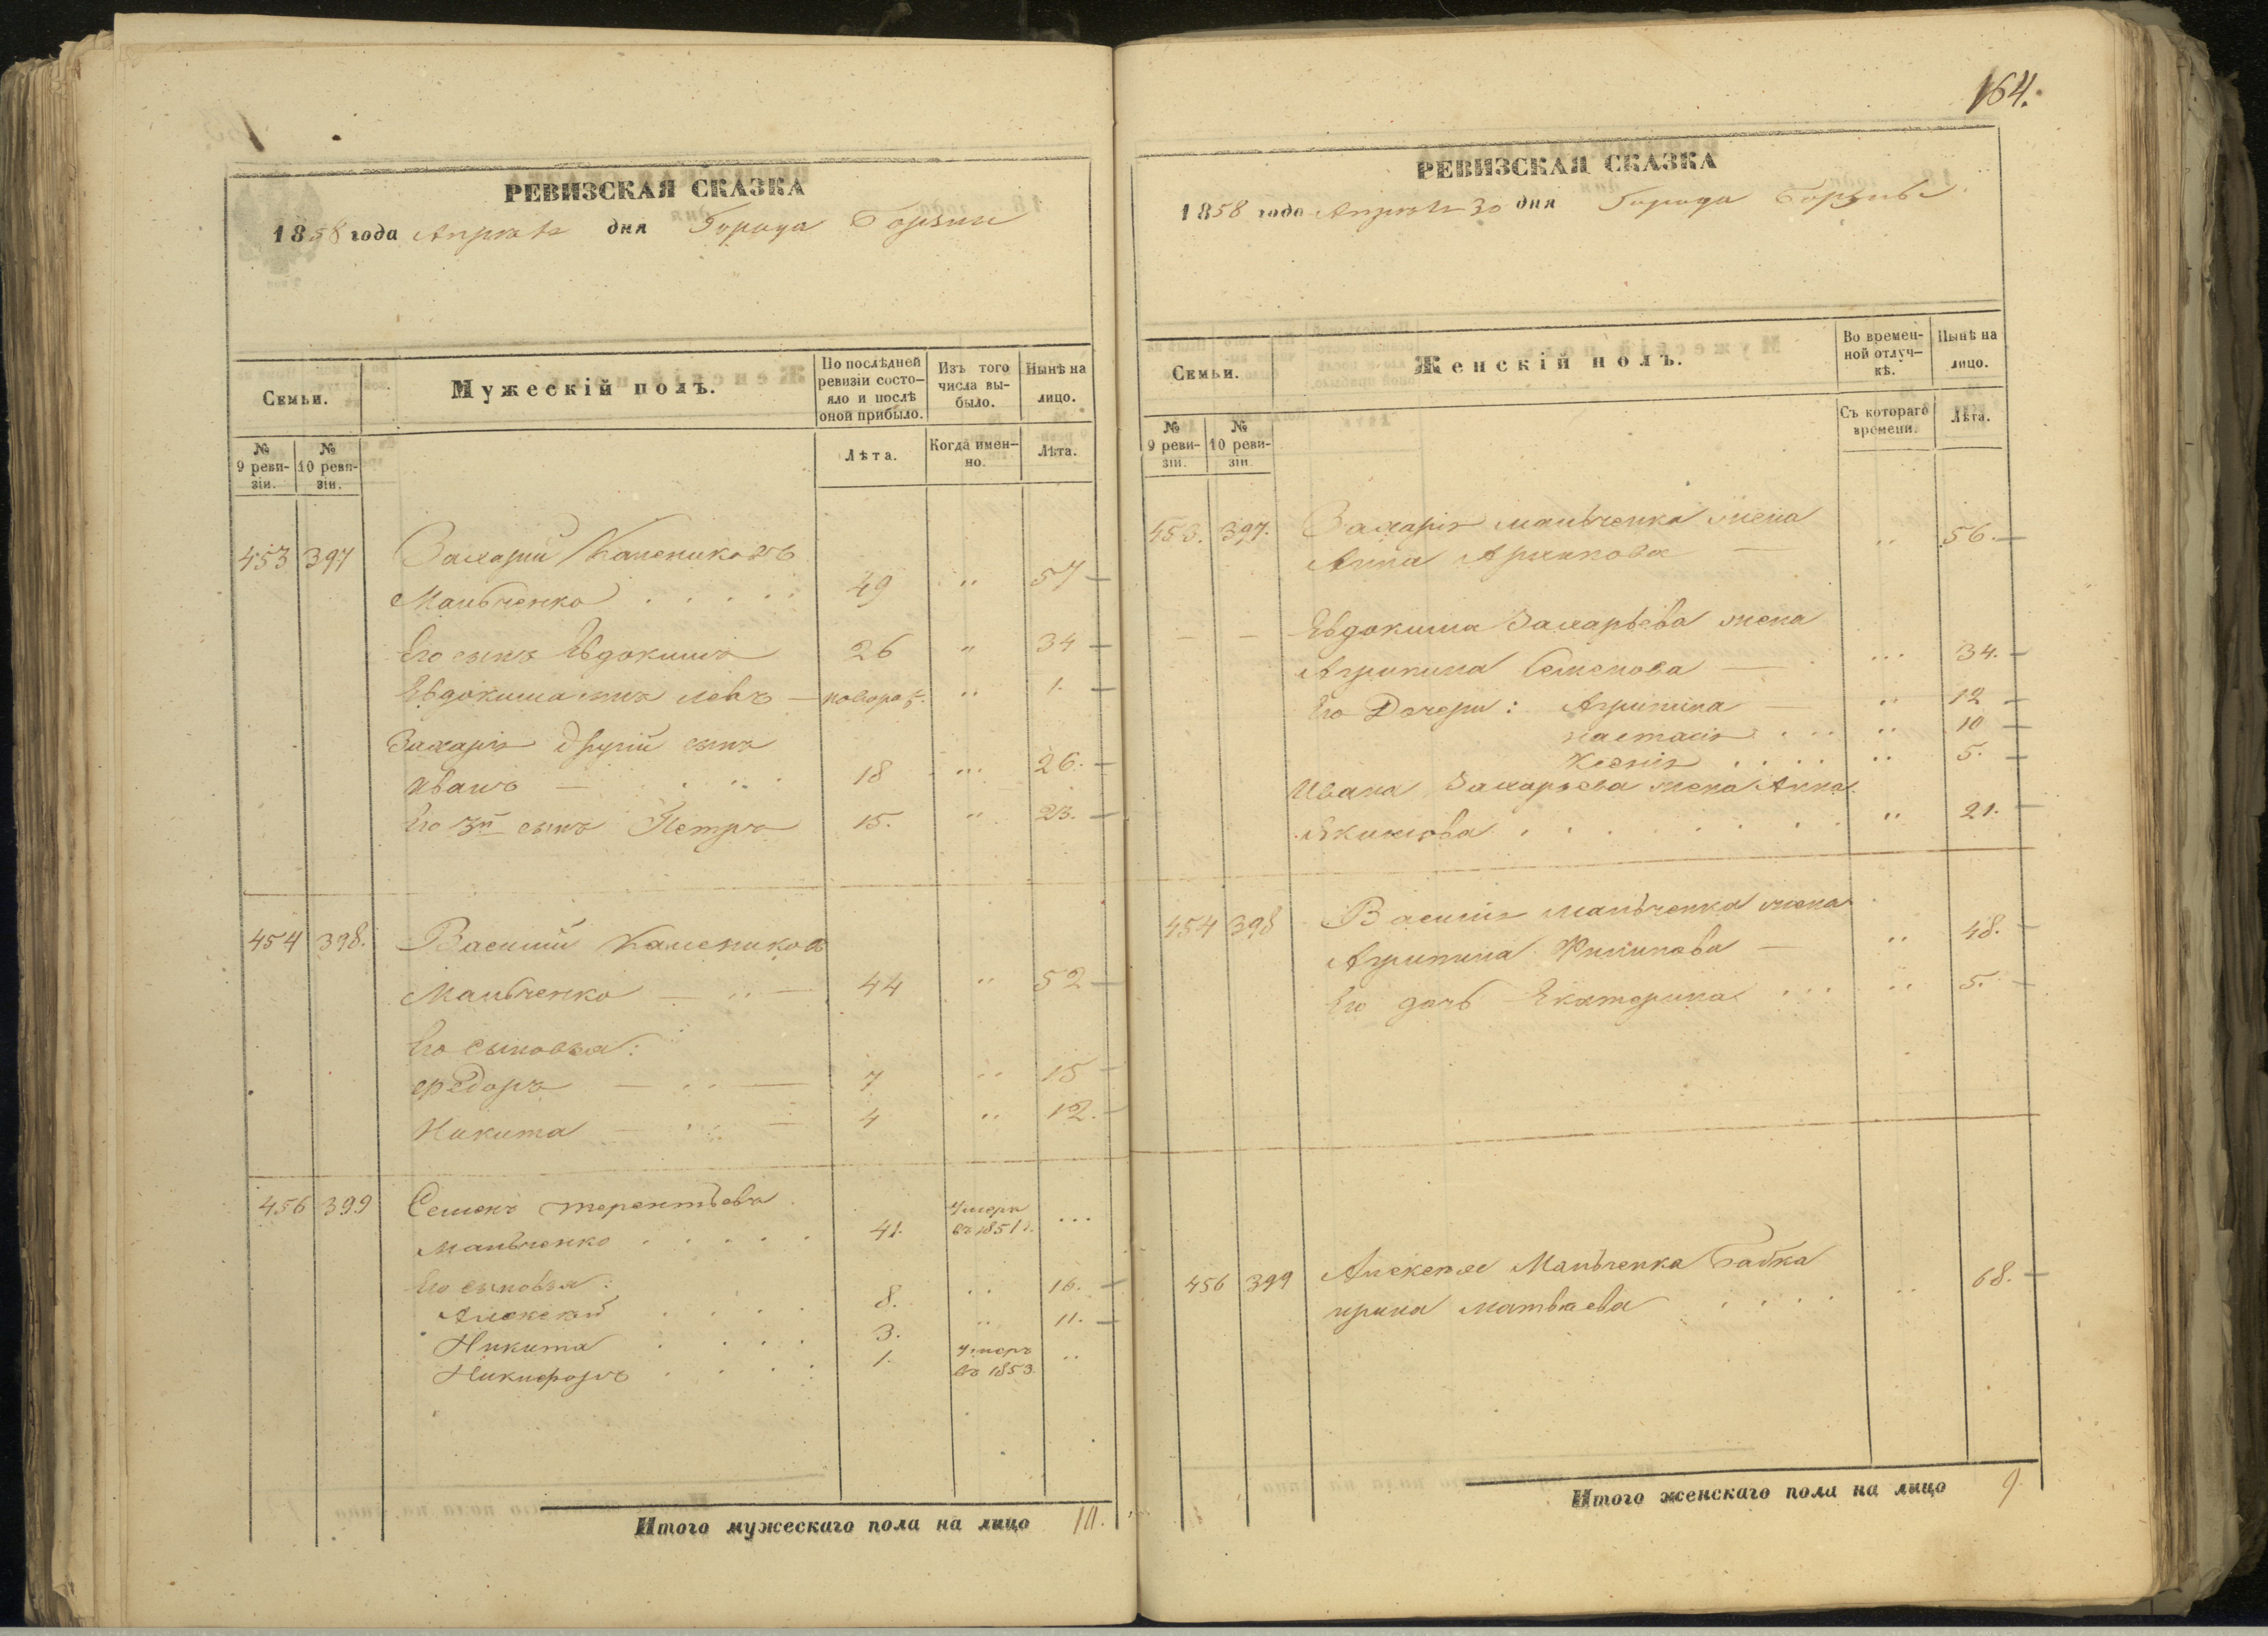 РЕВИЗСКАЯ СКАЗКА
1858 года Апреля дня Города Борзни
Семьи.
Мужескій полъ.
По послѣдней ревизіи состо-
яло и послѣ оной прибыло.
Изъ того числа вы-
было.
Нынѣ на лицо.
№ 9 реви-
зіи.
№ 10 реви-
зіи.
Лѣта.
Когда имен-
но.
Лѣта.
453 397 Захарій Калениковъ
Мальченко . . . . . 49 " 57 —
Его сынъ Евдокимъ 26 " 34 —
Евдокима сынъ Левъ — новорож. " 1. —
Захарія другій сынъ
Иванъ — . . . 18 " 26. —
Его 3й сынъ Петръ 15. " 23. —
454 398. Василий Калениковъ
Мальченко — " — 44 " 52 —
Его сыновья:
Федоръ — " — 7 " 15 —
Никита — " — 4 " 12. —
456 399 Семенъ Терентьевъ
Мальченко . . . . . 41. умеръ въ 1851 г. ...
Его сыновья:
Алексей . . . . 8. " 16. —
Никита . . . . 3. " 11. —
Никифоръ . . . . 1. умеръ въ 1853 "
Итого мужескаго пола на лицо 10.
164.
РЕВИЗСКАЯ СКАЗКА
1858 года Апреля 30 дня Города Борзны
Семьи.
Женскій полъ.
Во времен-
ной отлуч-
кѣ.
Нынѣ на лицо.
№ 9 реви-
зіи.
№ 10 реви-
зіи.
Съ котораго времени.
Лѣта.
453. 397. Захарія Мальченка жена
Анна — " 56. —
— — Евдокима Захарьева жена
Агрипина Семенова — ... 34. —
Его Дочери: Агрипина — " 12 —
Настасія . . . " 10 —
Ксенія . . . . " 5. —
Ивана Захарьева жена Анна
Якимова . . . . . . . " 21. —
454 398 Василія Мальченка жена
Агрипина Филипова — " 48. —
Его дочь Екатерина ... " 5. —
456 399 Алексея Мальченка Бабка
Ирина Матвеева . . . . " 68. —
Итого женскаго пола на лицо 9.